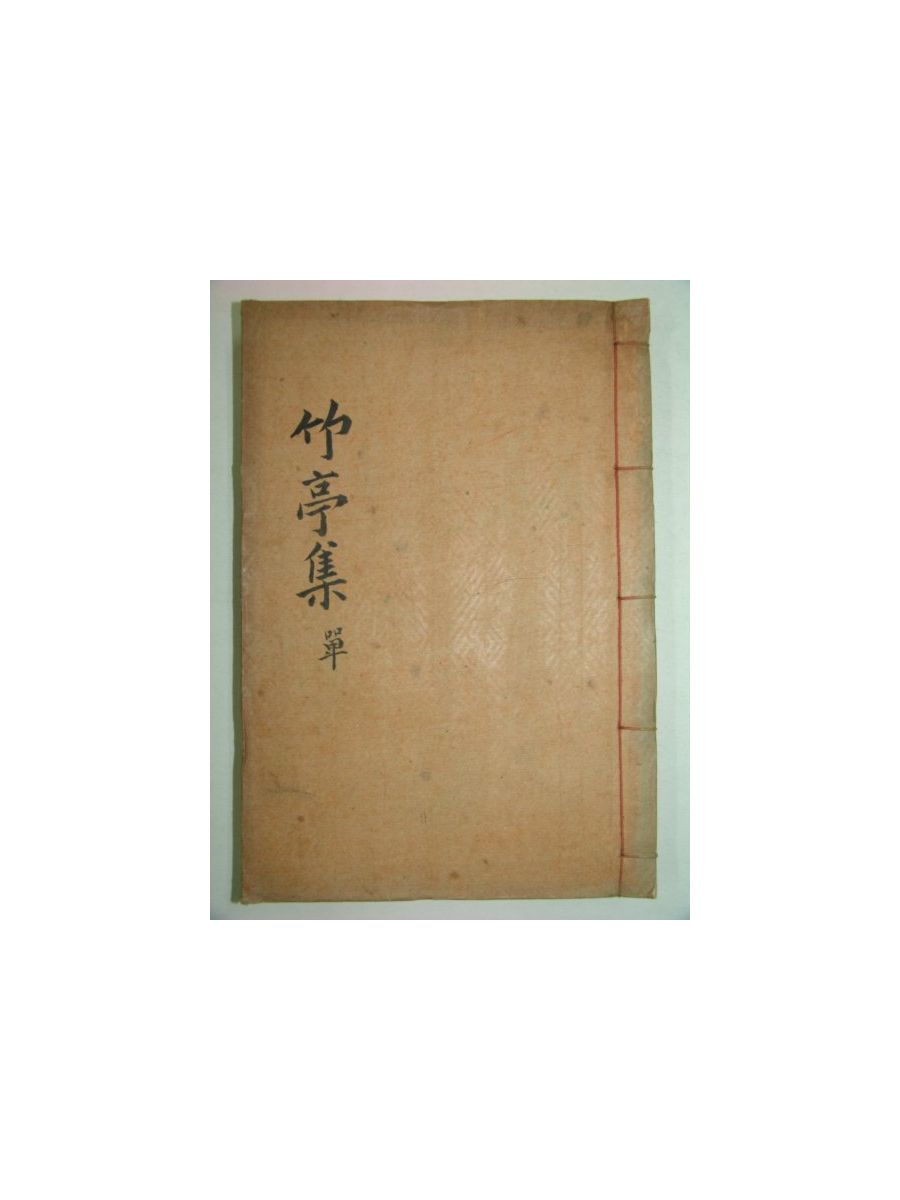 竹亭集
單